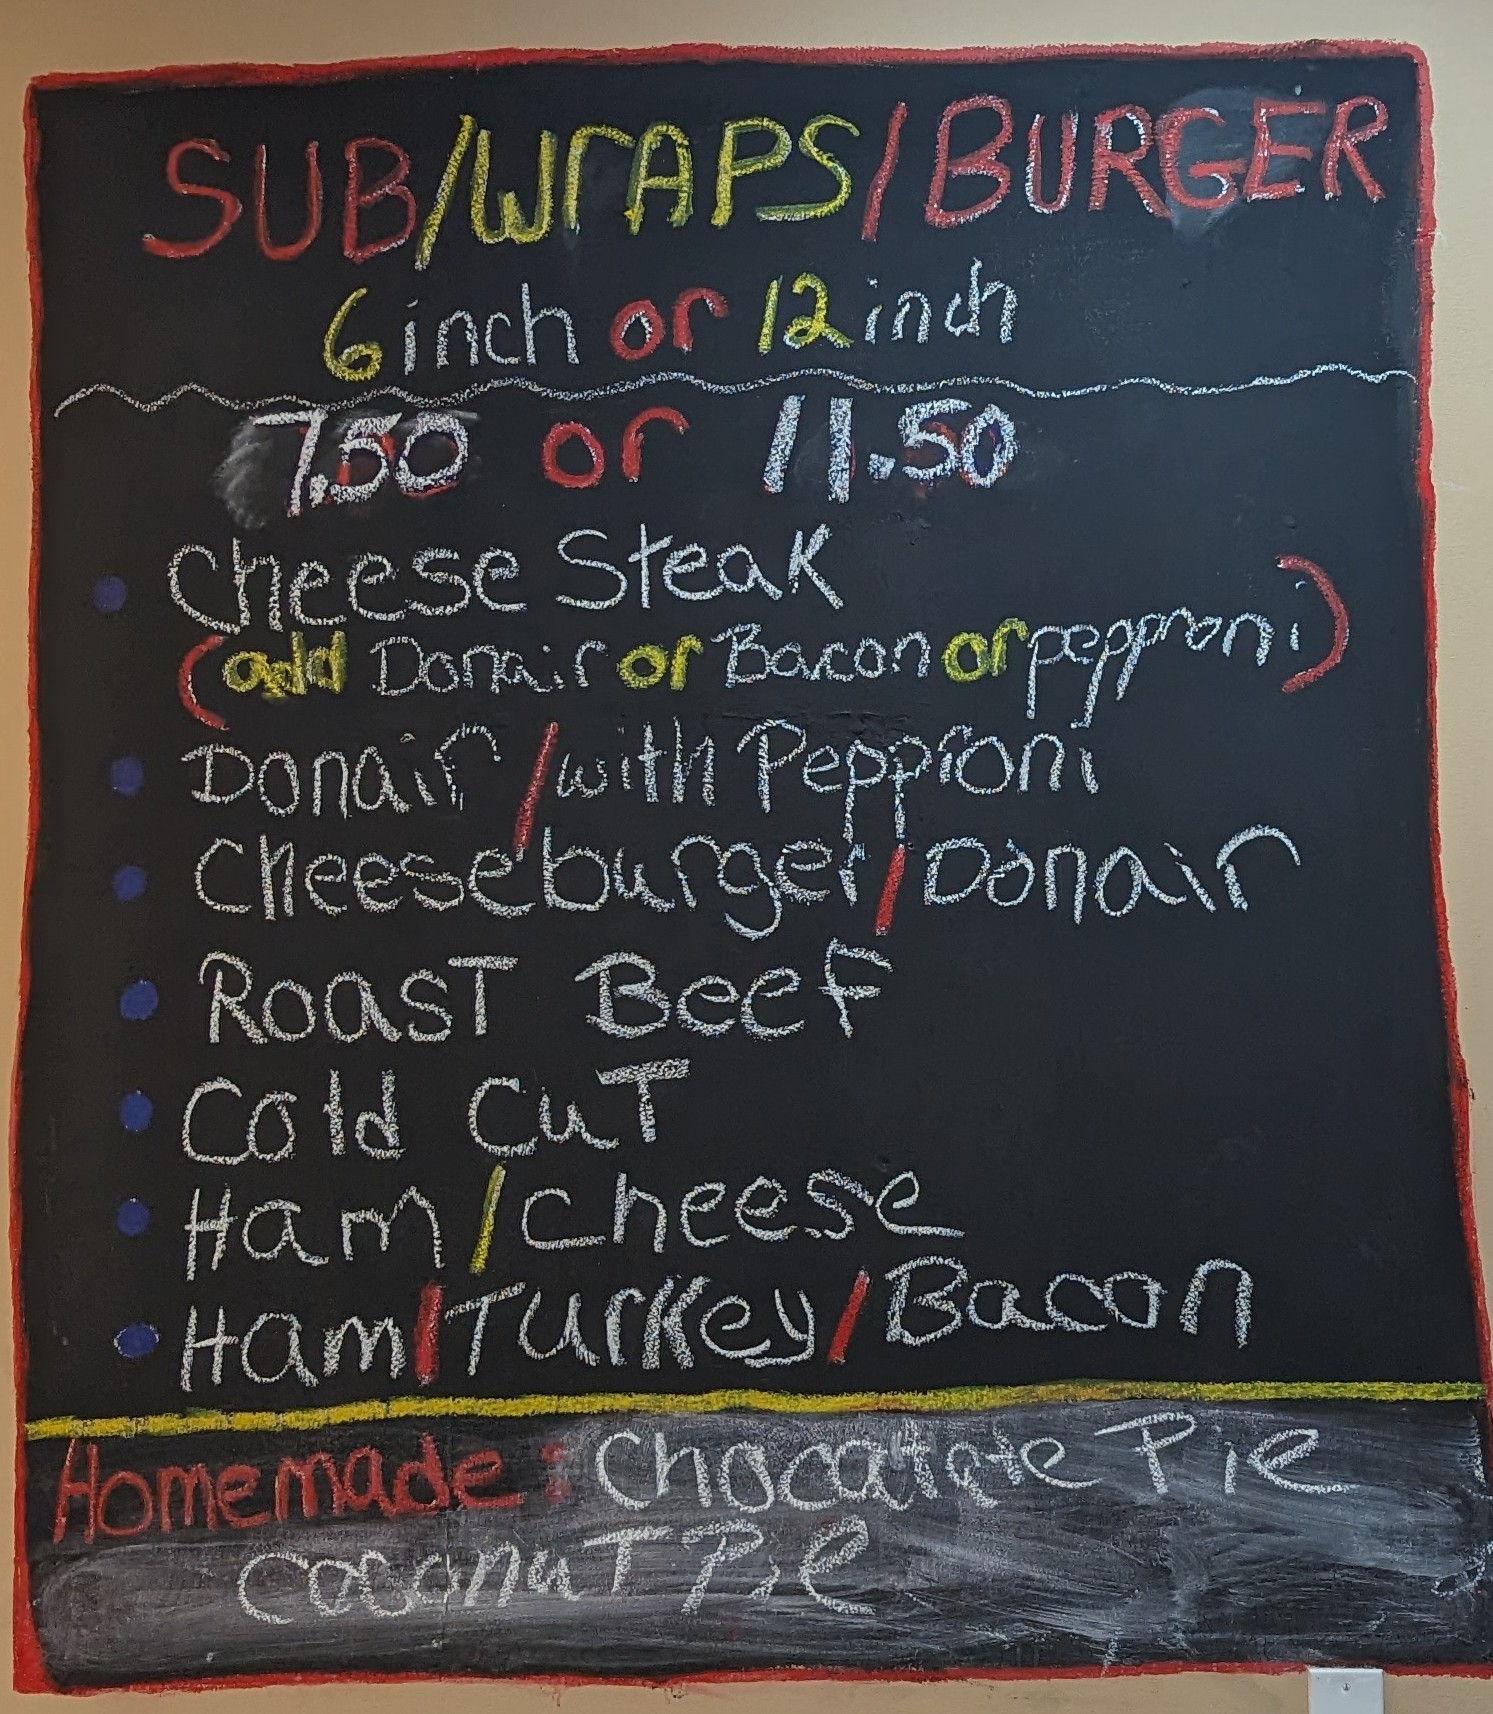 SUB/WrAPS/BURGER
6 inch or 12 inch
7.50 or 11.50
Cheese Steak
(add Donair or Bacon or pepproni)
Donair/with Pepproni
Cheeseburger/Donair
Roast Beef
Cold CuT
Ham/cheese
Ham/Turkey/Bacon
Homemade: Chocalate Pie
Coconut Pie